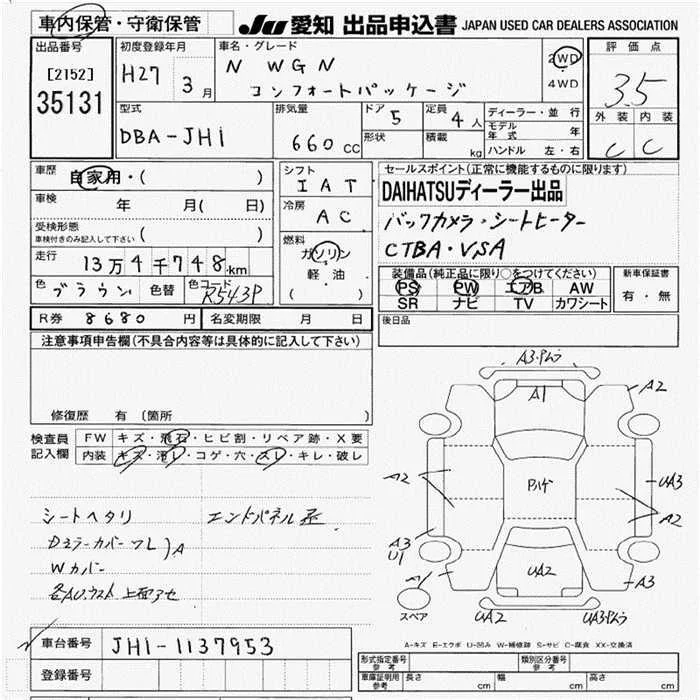 車内保管・守衛保管
JU 愛知 出品申込書 JAPAN USED CAR DEALERS ASSOCIATION
出品番号
[2152]
35131
初度登録年月
H27 3月
車名・グレード
N WGN
コンフォートパッケージ
2WD
4WD
評価点
3.5
外装 内装
C C
型式
DBA-JH1
排気量
660cc
ドア 5
形状
定員 4人
積載 kg
ディーラー・並行
モデル年式 年
ハンドル 左・右
車歴
自家用・( )
車検 年 月( 日)
受検形態
車検付きのみ記入して下さい ( )
走行
13万4千748km
色 ブラウン 色替 色コード R543P
シフト
IAT
冷房
AC
燃料
ガソリン
軽油
( )
セールスポイント(正常に機能するものに限ります)
DAIHATSUディーラー出品
バックカメラ・シートヒーター
CTBA・VSA
装備品(純正品に限り○をつけてください)
PS PW エアB AW
SR ナビ TV カワシート
新車保証書
有・無
R券 8680円 名変期限 月 日
後日品
注意事項申告欄(不具合内容等は具体的に記入して下さい)
修復歴 有 〔箇所 〕
検査員
記入欄
FW キズ・飛石・ヒビ割・リペア跡・X要
内装 キズ・汚レ・コゲ・穴・スレ・キレ・破レ
シートヘタリ エンドパネル
Dミラーカバー
Wカバー
A
A1
A2
A2
UA3
A2
A3
U1
UA2
A3
A1
スペア
UA2
A-キズ E-エクボ U-凹み W-補修跡 S-サビ C-腐食 XX-交換済
車台番号 JH1-1137953
登録番号
形式指定番号
参考
類別区分番号
参考
車庫証明用
参考
長さ cm 幅 cm 高さ cm